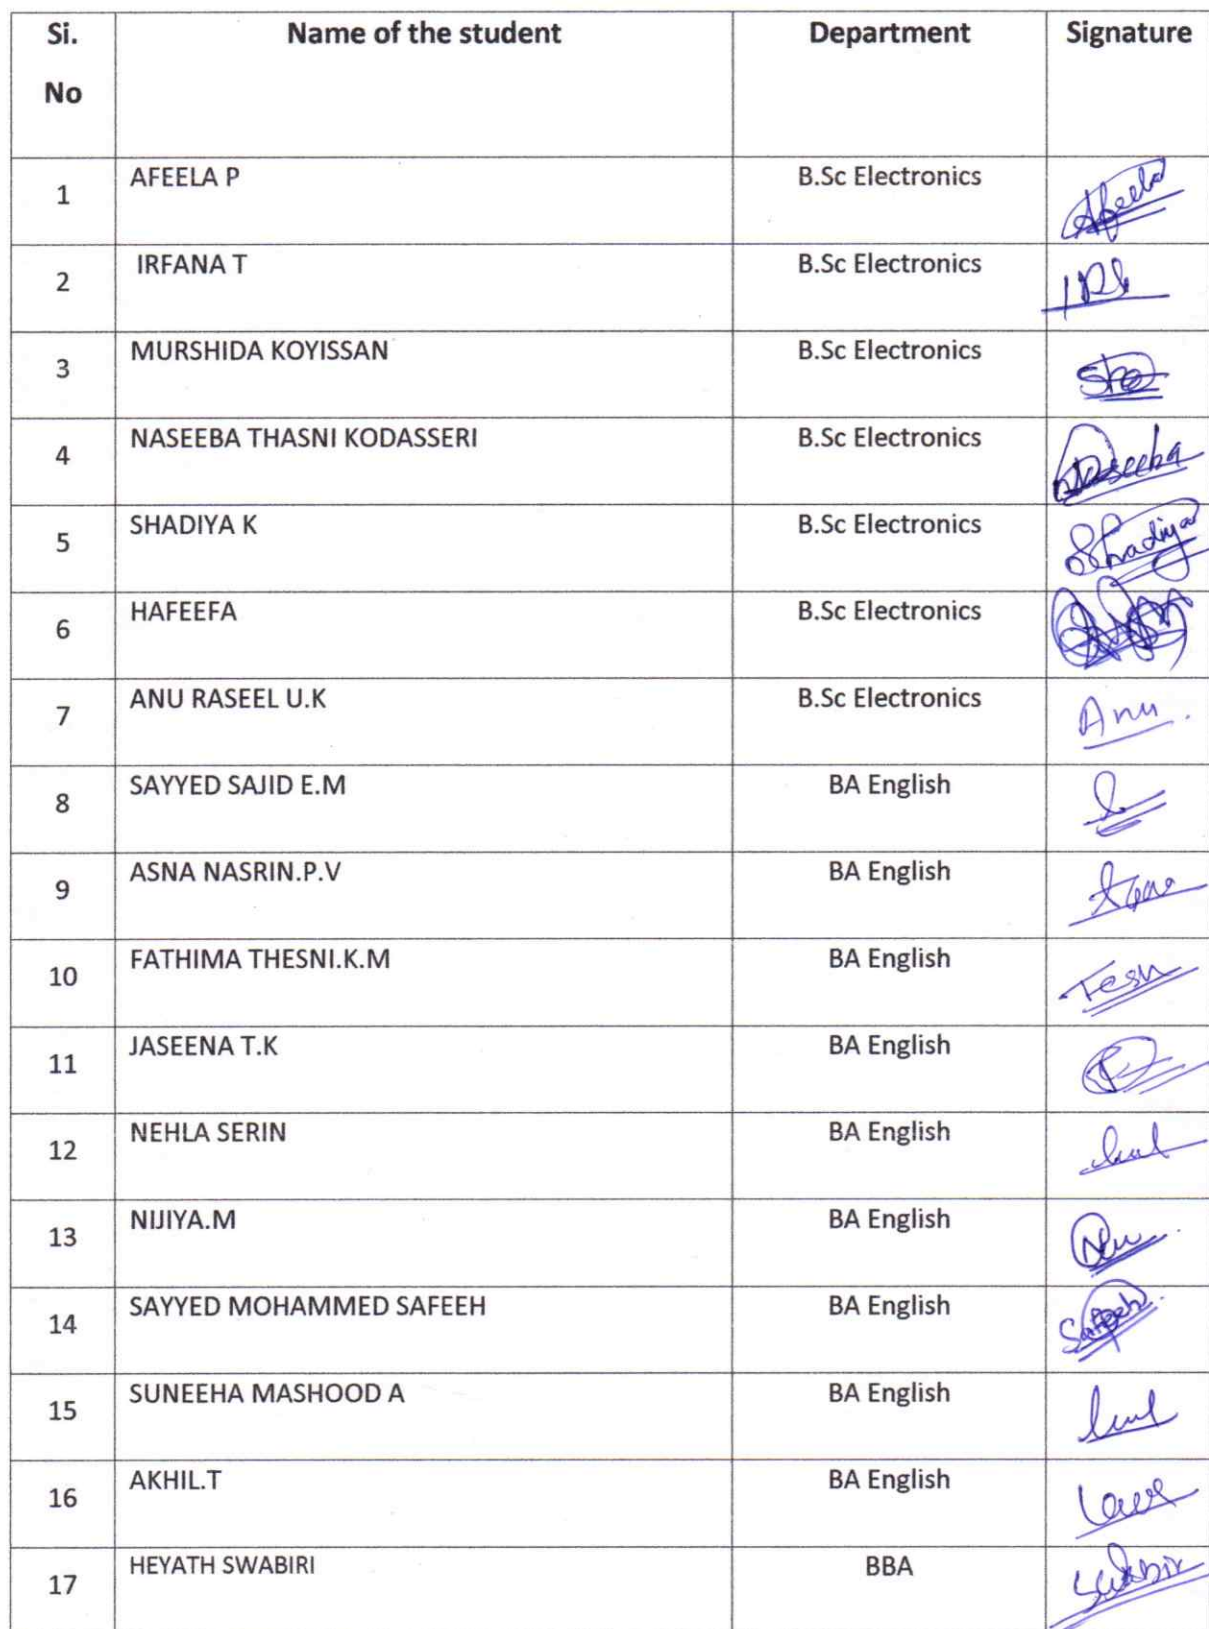 Si. No Name of the student Department Signature
1 AFEELA P B.Sc Electronics Afeela
2 IRFANA T B.Sc Electronics
3 MURSHIDA KOYISSAN B.Sc Electronics
4 NASEEBA THASNI KODASSERI B.Sc Electronics Naseeba
5 SHADIYA K B.Sc Electronics Shadiya
6 HAFEEFA B.Sc Electronics
7 ANU RASEEL U.K B.Sc Electronics Anu.
8 SAYYED SAJID E.M BA English
9 ASNA NASRIN.P.V BA English
10 FATHIMA THESNI.K.M BA English
11 JASEENA T.K BA English
12 NEHLA SERIN BA English
13 NIJIYA.M BA English
14 SAYYED MOHAMMED SAFEEH BA English Safeeh
15 SUNEEHA MASHOOD A BA English
16 AKHIL.T BA English
17 HEYATH SWABIRI BBA